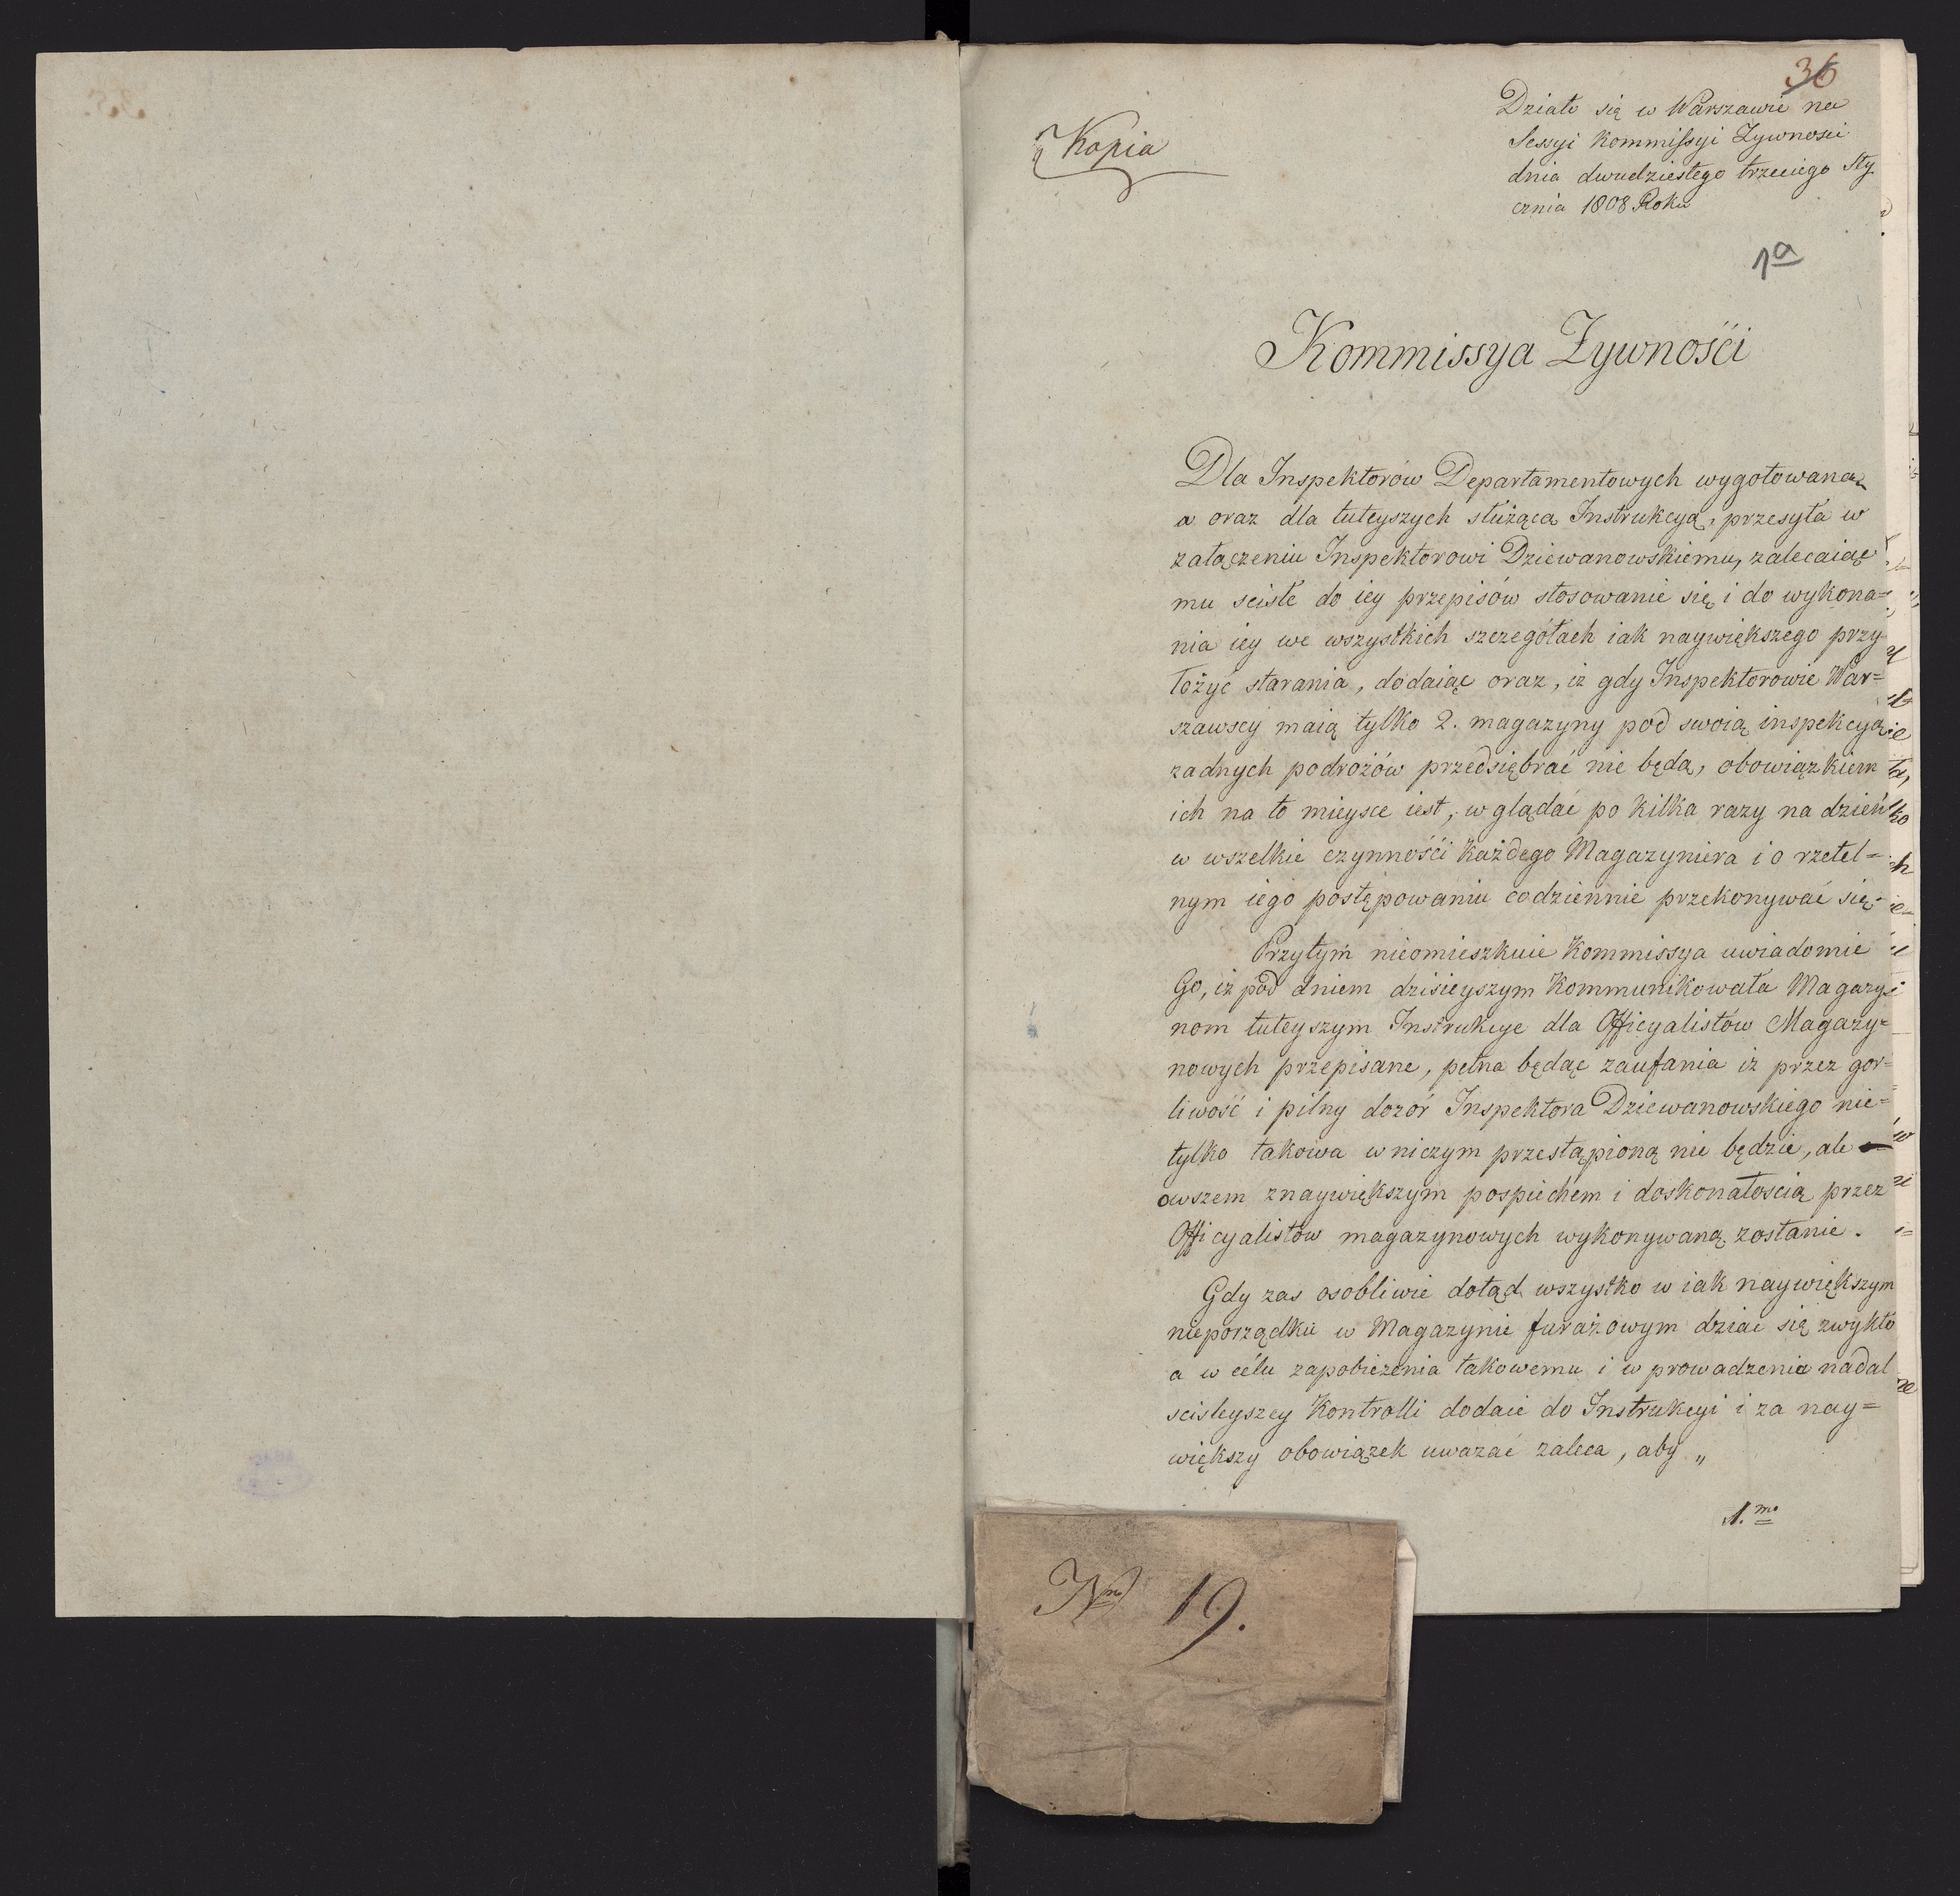 36
Kopia
Działo się w Warszawie na
Sessyi Kommissyi Zywnosci
dnia dwudziestego trzeciego Sty
cznia 1808 Roku
1a
Kommissya Zywnośći
Dla Inspektorów Departamentowych wygotowaną
a oraz dla tuteyszych służącą Instrukcyą, przesyła w
załączeniu Inspektorowi Dziewanowskiemu, zalecaiąc
mu sciste do iey przepisów stosowanie się i do wykona=
nia iey we wszystkich szczegółach iak naywiększego przy
łożyć starania, dodaiąc oraz, iż gdy Inspektorowie War=
szawscy maią tylko 2. magazyny pod swoią inspekcyą
zadnych podrożów przedsiębrać nie będą, obowiązkiem
ich na to mieysce iest, wglądać po kilka razy na dzień
w wszelkie czynnośći każdego Magazyniera i o rzetel=
nym iego postępowaniu codziennie przekonywać się.
Przytym nieomieszkuie Kommissya uwiadomic
Go, iż pod dniem dzisieyszym Kommunikowała Magazy
nom tuteyszym Instrukcye dla Officyalistów Magazy=
nowych przepisane, pełna będąc zaufania iż przez gor=
liwość i pilny dozór Inspektora Dziewanowskiego nie=
tylko takowa wniczym przestąpioną nie będzie, ale
owszem znaywiększym pospiechem i doskonałoscią przez
Officyalistów magazynowych wykonywaną zostanie.
Gdy zas osobliwie dotąd wszystko w iak naywiększym
nieporządku w Magazynie furażowym dziac się zwykło
a w célu zapobieżenia takowemu i w prowadzenia nadal
scisleyszey Kontrolli dodaie do Instrukcyi i za nay=
większy obowiązek uwazać zaleca, aby „
1.mo
Nro 19.